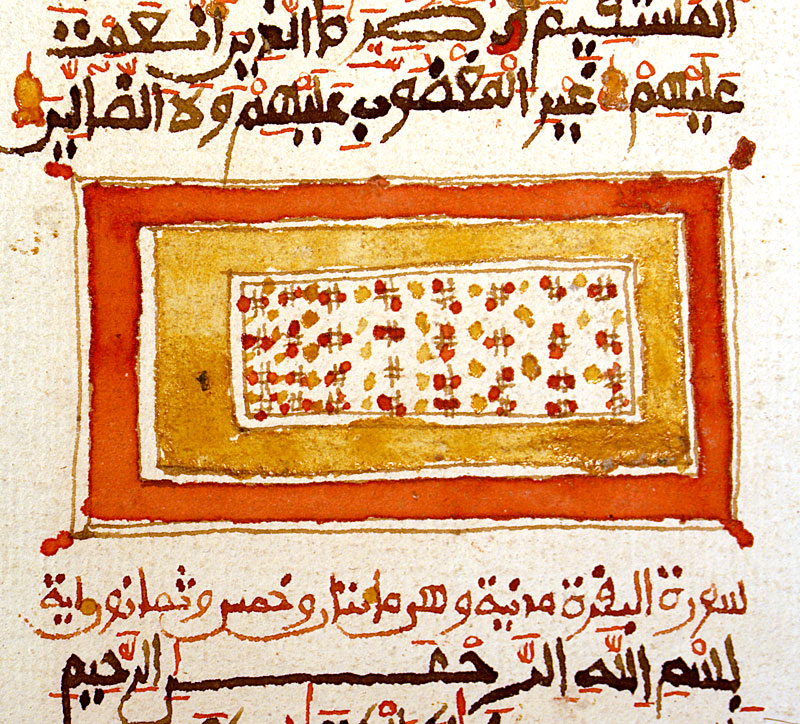 المستقيم صرط الذين انعمت
عليهم غير المغضوب عليهم ولا الضالين
سورة البقرة مدنية وهي مايتان وخمس وثمانون اية
بسم الله الرحمن الرحيم